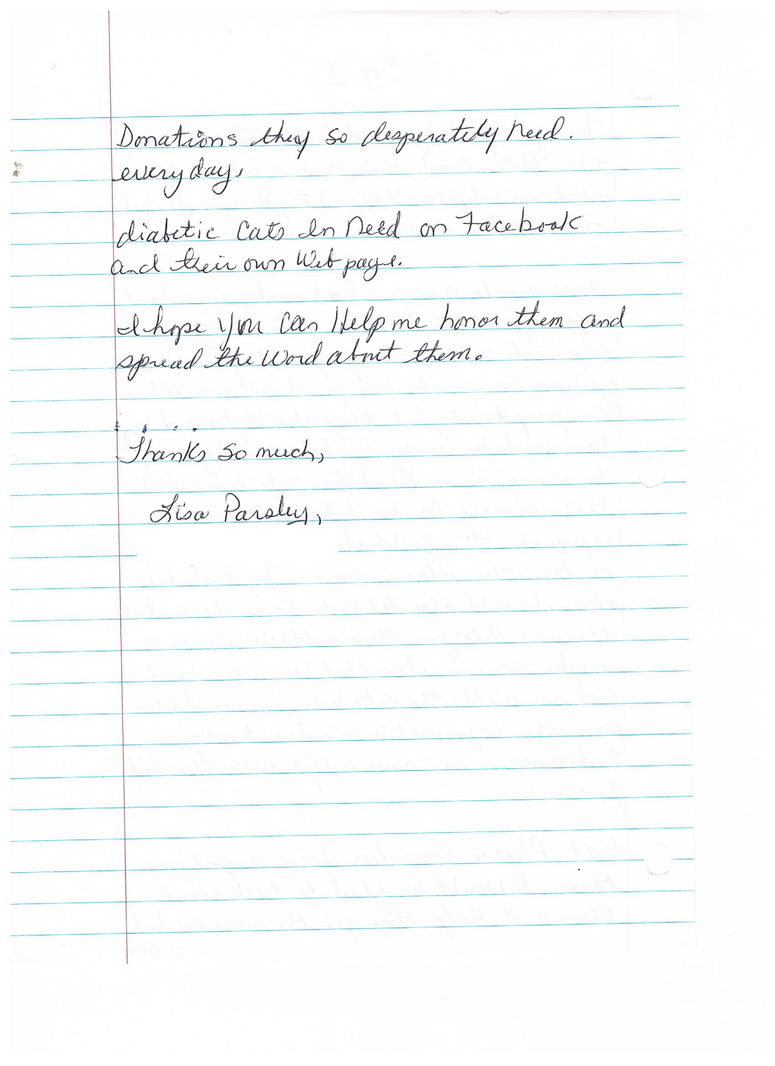 Donations they so desperately need.
everyday,
diabetic Cats In Need on Facebook
and their own Web page.
I hope you can Help me honor them and
spread the Word about them.
Thanks so much,
Lisa Parsley,